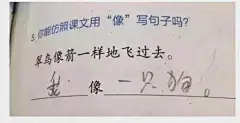 5.你能仿照课文用“像”写句子吗?
翠鸟像箭一样地飞过去。
我 像 一只狗。